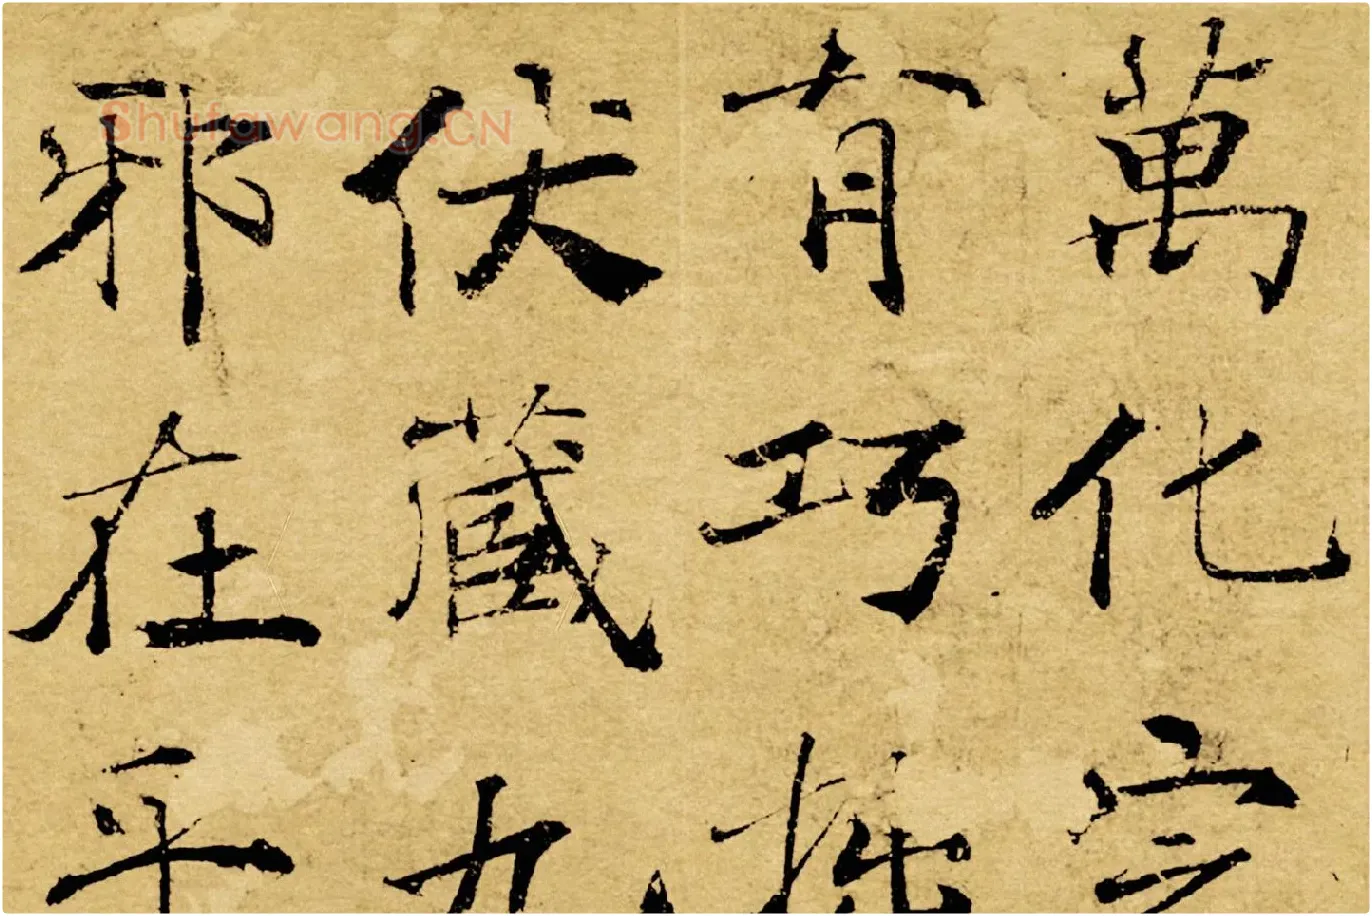 萬化定
有巧拙
伏藏九
邪在乎
Shufawang.CN